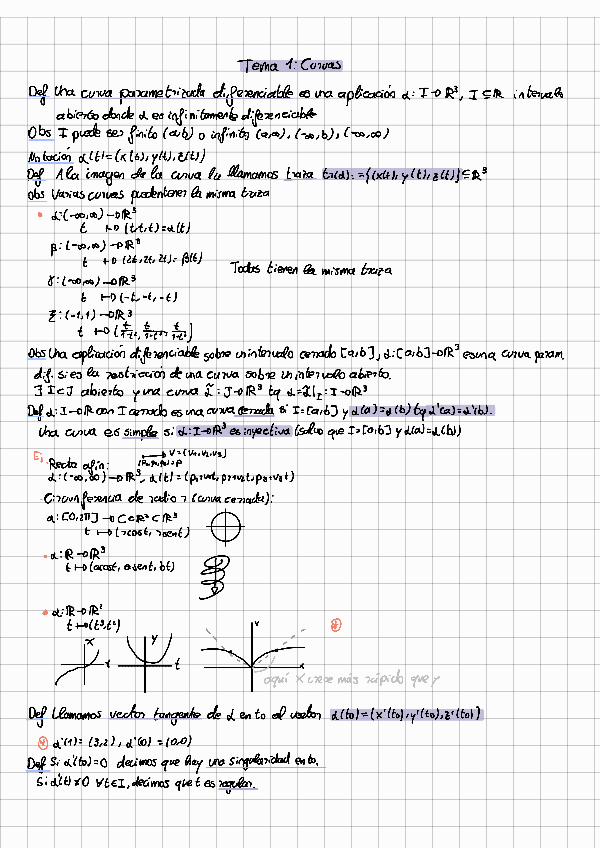 Tema 1: Curvas
Def Una curva parametrizada diferenciable es una aplicación α: I→ℝ³, I ⊆ ℝ intervalo
abierto donde α es infinitamente diferenciable
Obs I puede ser finito (a,b) o infinito (a,∞), (-∞,b), (-∞,∞)
Notación α(t)=(x(t), y(t), z(t))
Def A la imagen de la curva la llamamos traza tr(α):={(x(t), y(t), z(t))}⊆ℝ³
Obs Varias curvas pueden tener la misma traza
• α:(-∞,∞)→ℝ³
t ↦ (t,t,t)=α(t)
β:(-∞,∞)→ℝ³
t ↦ (2t,2t,2t)=β(t)
Todas tienen la misma traza
γ:(-∞,∞)→ℝ³
t ↦ (-t,-t,-t)
ξ:(-1,1)→ℝ³
t ↦ (t/1-t², t/1-t², t/1-t²)
Obs Una aplicación diferenciable sobre un intervalo cerrado [a,b], α:[a,b]→ℝ³ es una curva param.
dif. si es la restricción de una curva sobre un intervalo abierto.
∃ I⊂J abierto y una curva α̃:J→ℝ³ tq α=α̃|I: I→ℝ³
Def α:I→ℝ con I cerrado es una curva cerrada si I=[a,b] y α(a)=α(b) tq α'(a)=α'(b).
Una curva es simple si α:I→ℝ³ es inyectiva (salvo que I=[a,b] y α(a)=α(b))
Ej
Recta afín:
v=(v₁,v₂,v₃)
(p₁,p₂,p₃)=p
α:(-∞,∞)→ℝ³, α(t)=(p₁+v₁t, p₂+v₂t, p₃+v₃t)
Circunferencia de radio r (curva cerrada):
α:[0,2π]→C⊂ℝ²⊂ℝ³
t ↦ (rcost, rsent)
• α:ℝ→ℝ³
t ↦ (acost, asent, bt)
• α:ℝ→ℝ²
t ↦ (t³,t²)
x
t
y
t
y
x
aquí x crece más rápido que y
Def Llamamos vector tangente de α en t₀ al vector α(t₀)=(x'(t₀), y'(t₀), z'(t₀))
α'(1)=(3,2), α'(0)=(0,0)
Def Si α'(t₀)=0 decimos que hay una singularidad en t₀.
Si α'(t)≠0 ∀t∈I, decimos que t es regular.